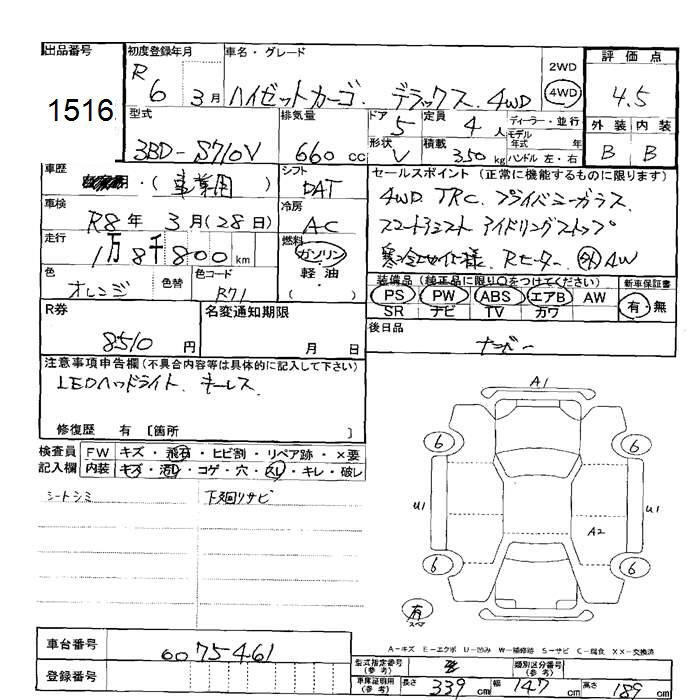 出品番号 1516
初度登録年月 R6 3月
車名・グレード ハイゼットカーゴ. デラックス. 4WD
2WD 4WD
評価点 4.5
外装 内装
B B
型式 3BD-S710V
排気量 660 cc
ドア 5 定員 4人
ディーラー・並行
モデル年式 年
形状 V 積載 350 kg ハンドル 左・右
車歴 自家用・(事業用)
シフト DAT
車検 R8年 3月(28日)
冷房 AC
走行 1万8千800 km
燃料 ガソリン
軽油
・( )
色 オレンジ 色替 色コード R71
セールスポイント(正常に機能するものに限ります)
4WD TRC. プライバシーガラス.
スマートアシスト アイドリングストップ
寒冷地仕様. Rヒーター. 外AW
装備品(純正品に限り〇をつけてください) 新車保証書
PS PW ABS エアB AW 有・無
SR ナビ TV カワ
R券 8510円
名変通知期限 月 日
後日品 ナンバー
注意事項申告欄(不具合内容等は具体的に記入して下さい)
LEDヘッドライト. キーレス.
修復歴 有 [箇所 ]
検査員 FW キズ・飛石・ヒビ割・リペア跡・×要
記入欄 内装 キズ・汚れ・コゲ・穴・スレ・キレ・破レ
シートシミ 下廻りサビ
A1
6 6
U1 U1
A2
6 6
有
スペア
車台番号 6075461
A-キズ E-エクボ U-凹み W-補修跡 S-サビ C-腐食 XX-交換済
登録番号
型式指定番号(参考) 類別区分番号(参考)
車庫証明用(参考) 長さ 339 cm 幅 147 cm 高さ 189 cm